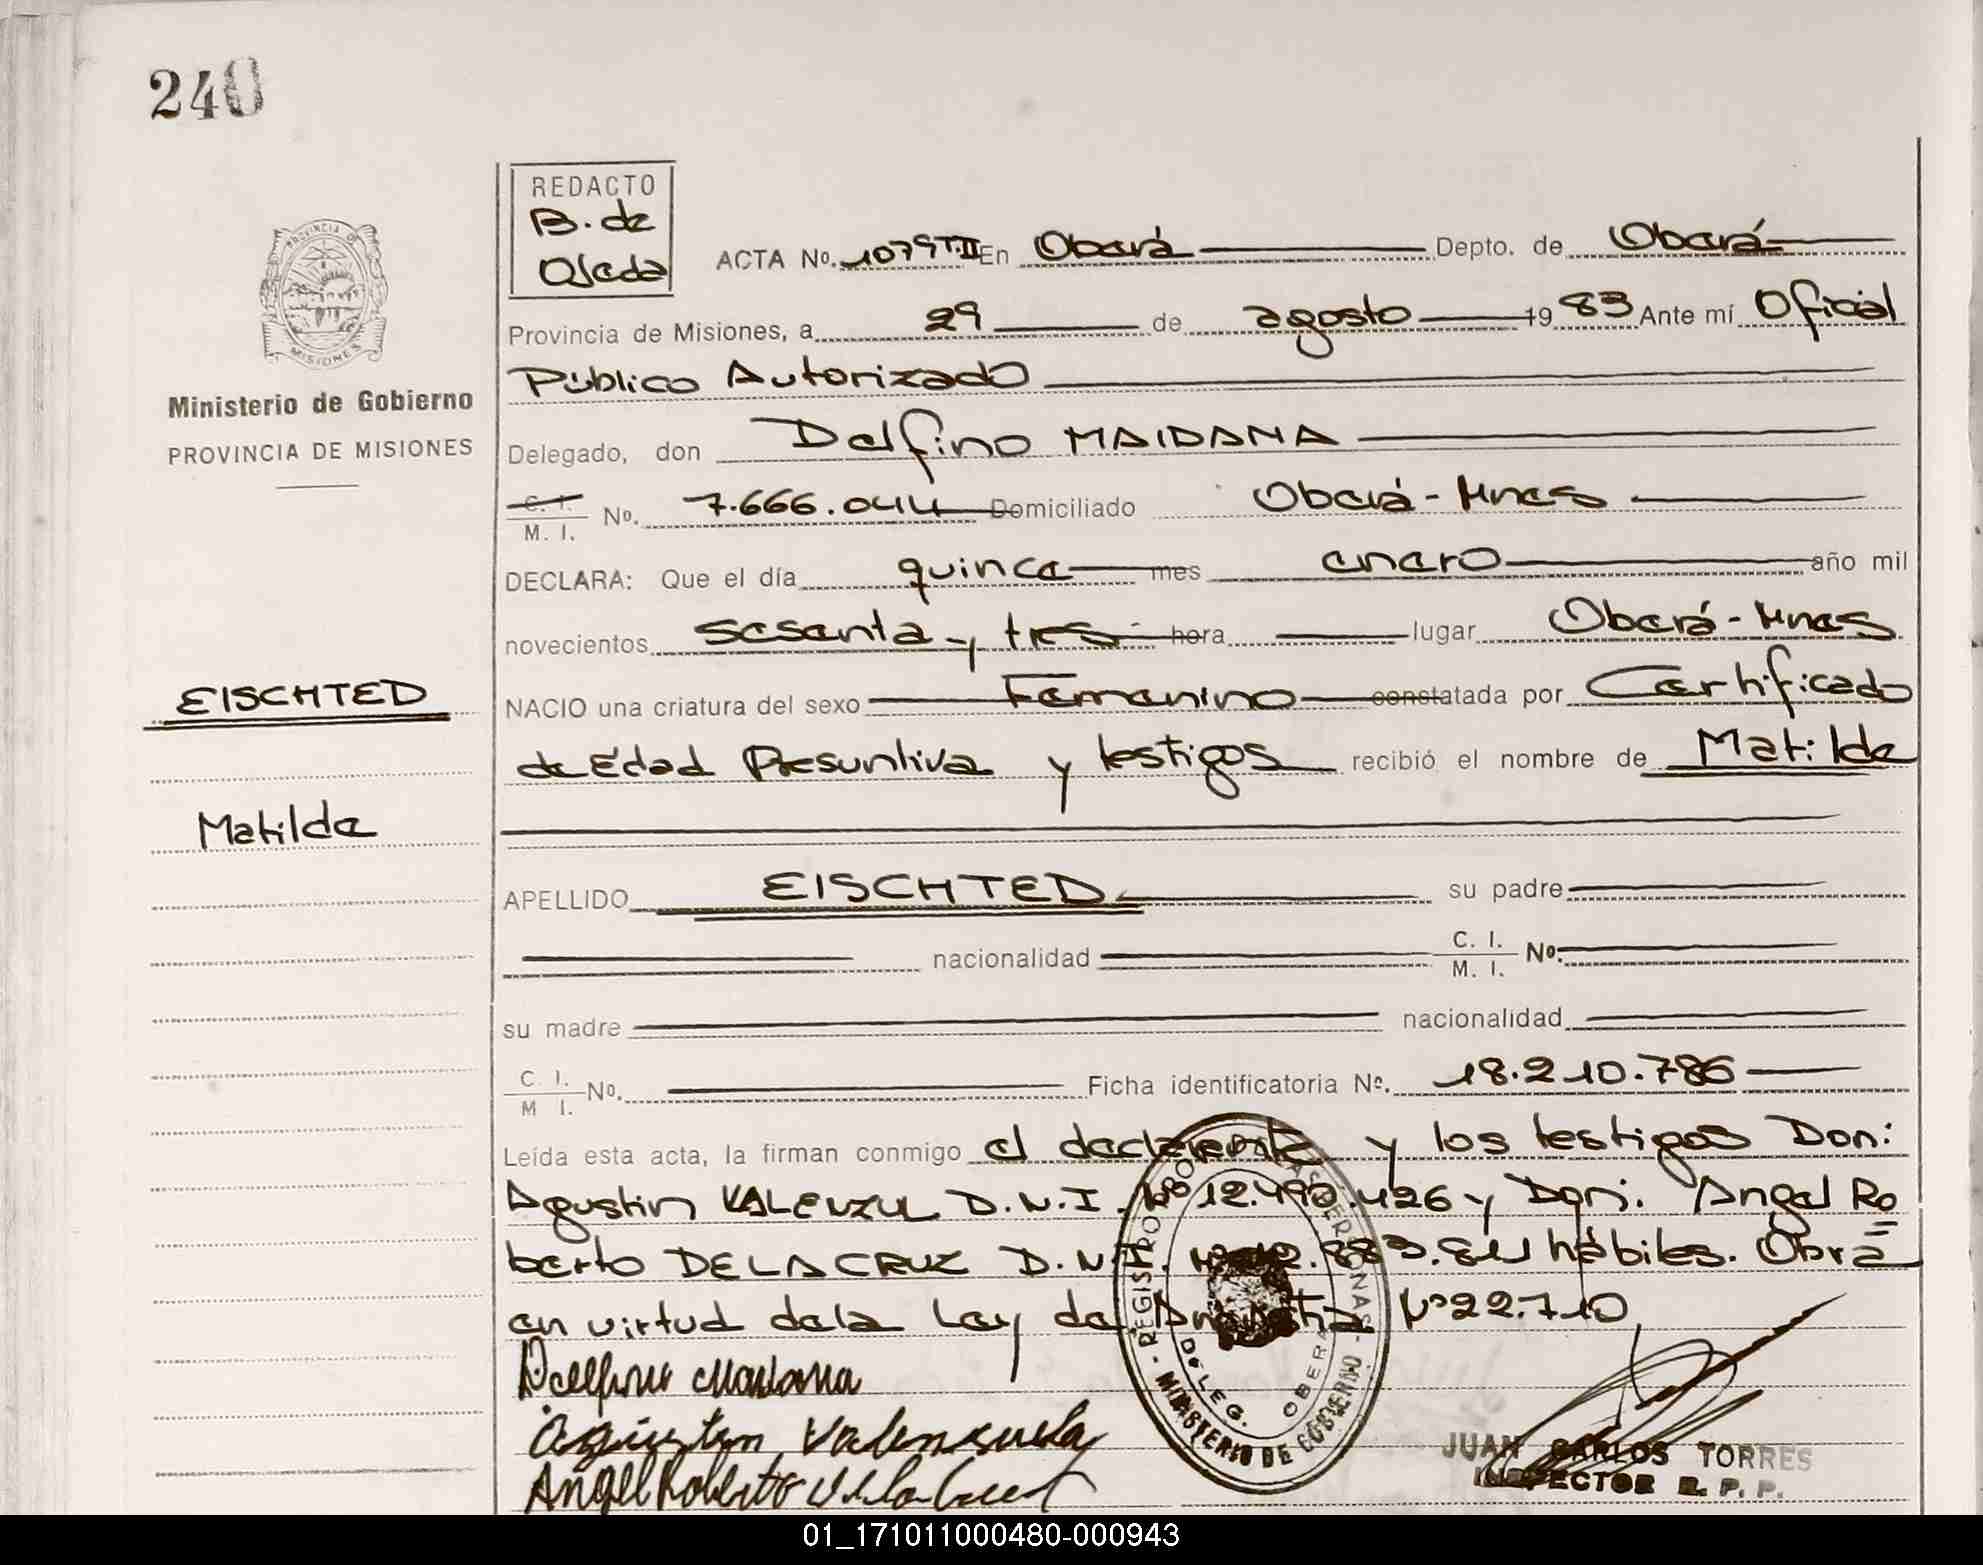 240
PROVINCIA DE
MISIONES
Ministerio de Gobierno
PROVINCIA DE MISIONES
EISCHTED
Matilde
REDACTO
B. de
Ojeda
ACTA No. 1079 T.II En Oberá Depto. de Oberá
Provincia de Misiones, a 29 de agosto 19 83 Ante mí Oficial
Público Autorizado
Delegado, don Delfino MAIDANA
C. I.
M. I. No. 7.666.044 Domiciliado Oberá - Mnes
DECLARA: Que el día quince mes enero año mil
novecientos sesenta y tres hora lugar Oberá - Mnes
NACIO una criatura del sexo Femenino constatada por Certificado
de Edad Presuntiva y testigos recibió el nombre de Matilde
APELLIDO EISCHTED su padre
nacionalidad C. I. M. I. No.
su madre nacionalidad
C. I. M I. No. Ficha identificatoria Nº. 18.210.786
Leída esta acta, la firman conmigo el declarante y los testigos Don:
Agustin VALENZUL D.N.I. Nº 12.490.426 y Don: Angel Ro
berto DE LA CRUZ D.N.I. hábiles. Obra
en virtud de la Ley de Amnistia Nº 22.710
Delfino Maidana
Agustin Valenzuela
Angel Roberto De la Cruz
REGISTRO
MINISTERIO DE GOBIERNO
DELEG. OBERA
JUAN CARLOS TORRES
INSPECTOR R. P. P.
01_171011000480-000943